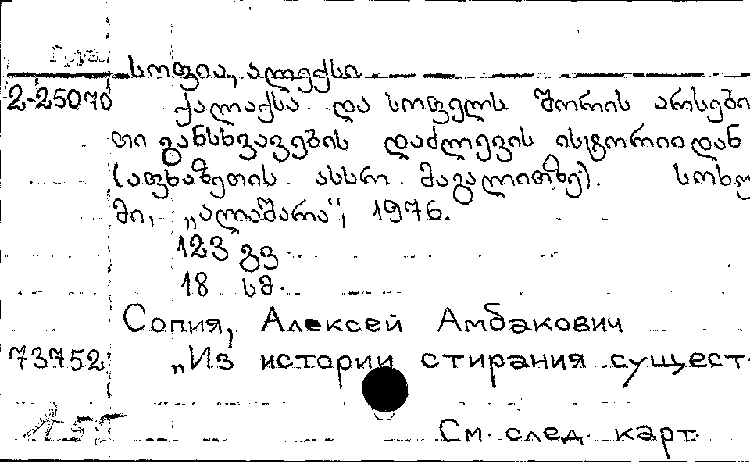 სოფია, ალექსი
2-25070 ქალაქსა და სოფელს შორის არსები
თი განსხვავების დაძლევის ისტორიიდან
(აფხაზეთის ასსრ მაგალითზე). სოხუ
მი, „ალაშარა“, 1976.
123 გვ
18 სმ.
Сопия, Алексей Амбакович
73752 „Из истории стирания сущест-
См. след. карт.